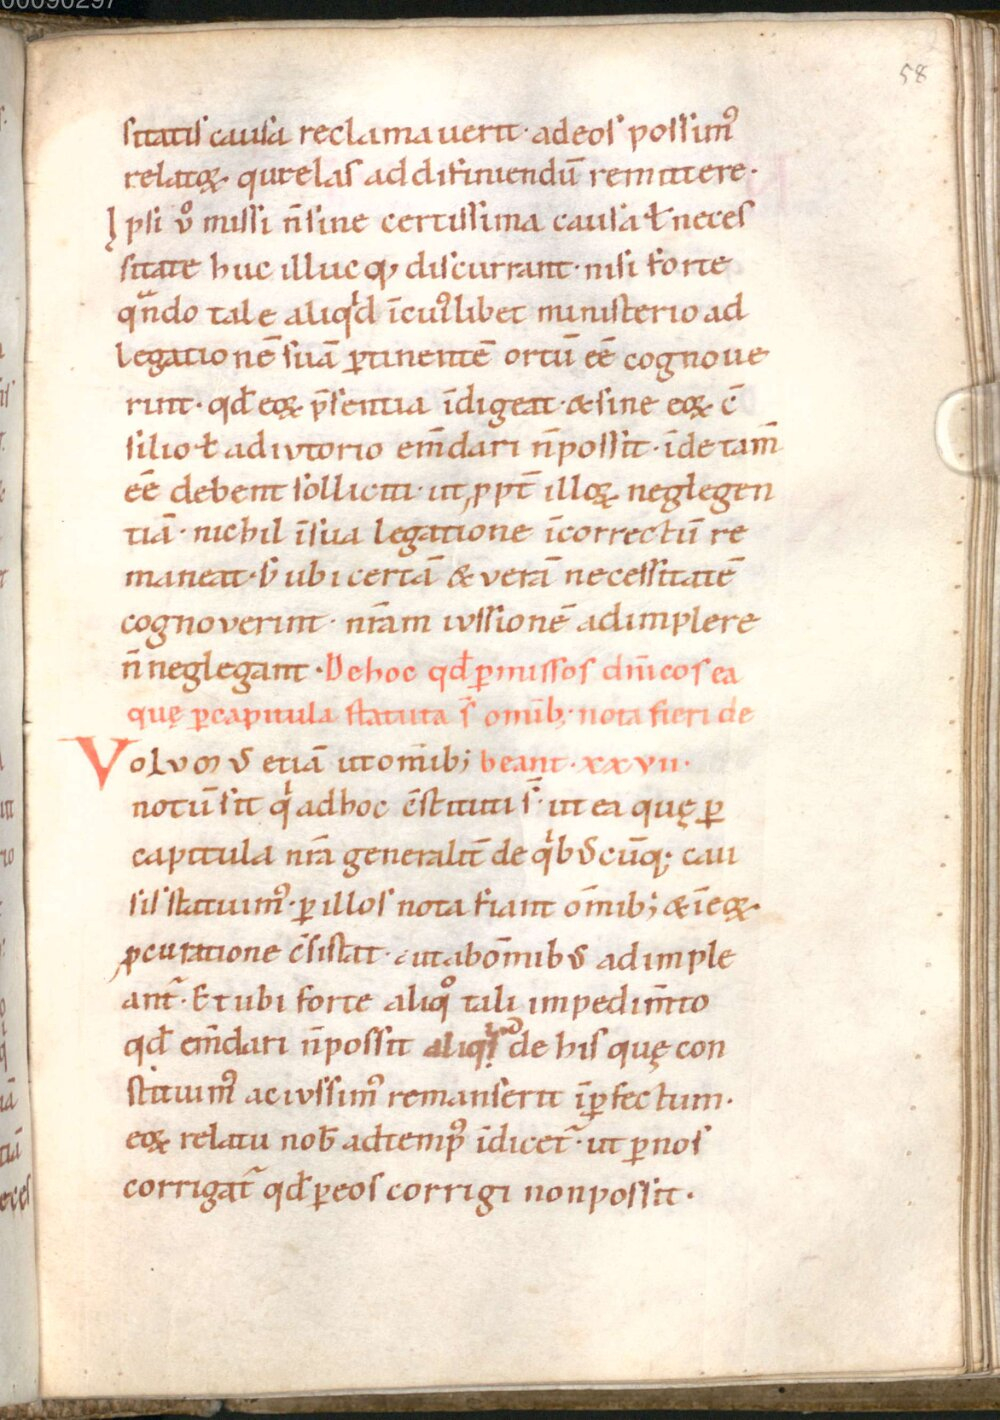 00090297
58
sitatis causa reclamauerit· adeos possim᷒
relatoꝝ· qu&relas addifiniendū remittere·
Ipsi ů missi n̄ sine certissima causa ł neces
sitate huc illucqꝫ discurrant· nisi forte
qn̄do tale aliqͥd īcui᷒libet ministerio ad
legationē suā ꝑtinentē ortū eē cognoue
rint· qđ eoꝝ p̄sentia īdigeat· & sine eoꝝ c̄
silio ł adiutorio em̄dari n̄possit· īde tam̄
eē debent solliciti· ut ꝓpt̄ illoꝝ neglegen
tiā· nichil īsua legatione īcorrectū re
maneat· S; ubi certā & verā necessitatē
cognoverint· nr̄am iussionē adimplere
n̄ neglegant· De hoc qđ ꝑmissos dn̄icos ea
quę ꝑcapitula statuta s̄ omīb; nota fieri de
Volvm᷒ etiā ut om̄ib; beant· xxvii·
notū sit qͥ adhoc c̄stituti s̄· ut ea quę ꝑ
capitula nr̄a generalit̄ de qͥbuscūq; cau
sis statuim᷒· ꝑ illos nota fiant om̄ib; & ī eoꝝ·
ꝓcuratione c̄sistat· ut abom̄ibus adimple
ant᷑· Et ubi forte aliqͦ tali impedim̄to
qđ em̄dari n̄possit aliqͥd de his quę con
stituim᷒ ac iussim᷒ remanserit īꝑfectum·
eoꝝ relatu nob̄ adtemp᷒ īdicet᷑· ut ꝑnos
corrigat᷑ qđ ꝑeos corrigi nonpossit·